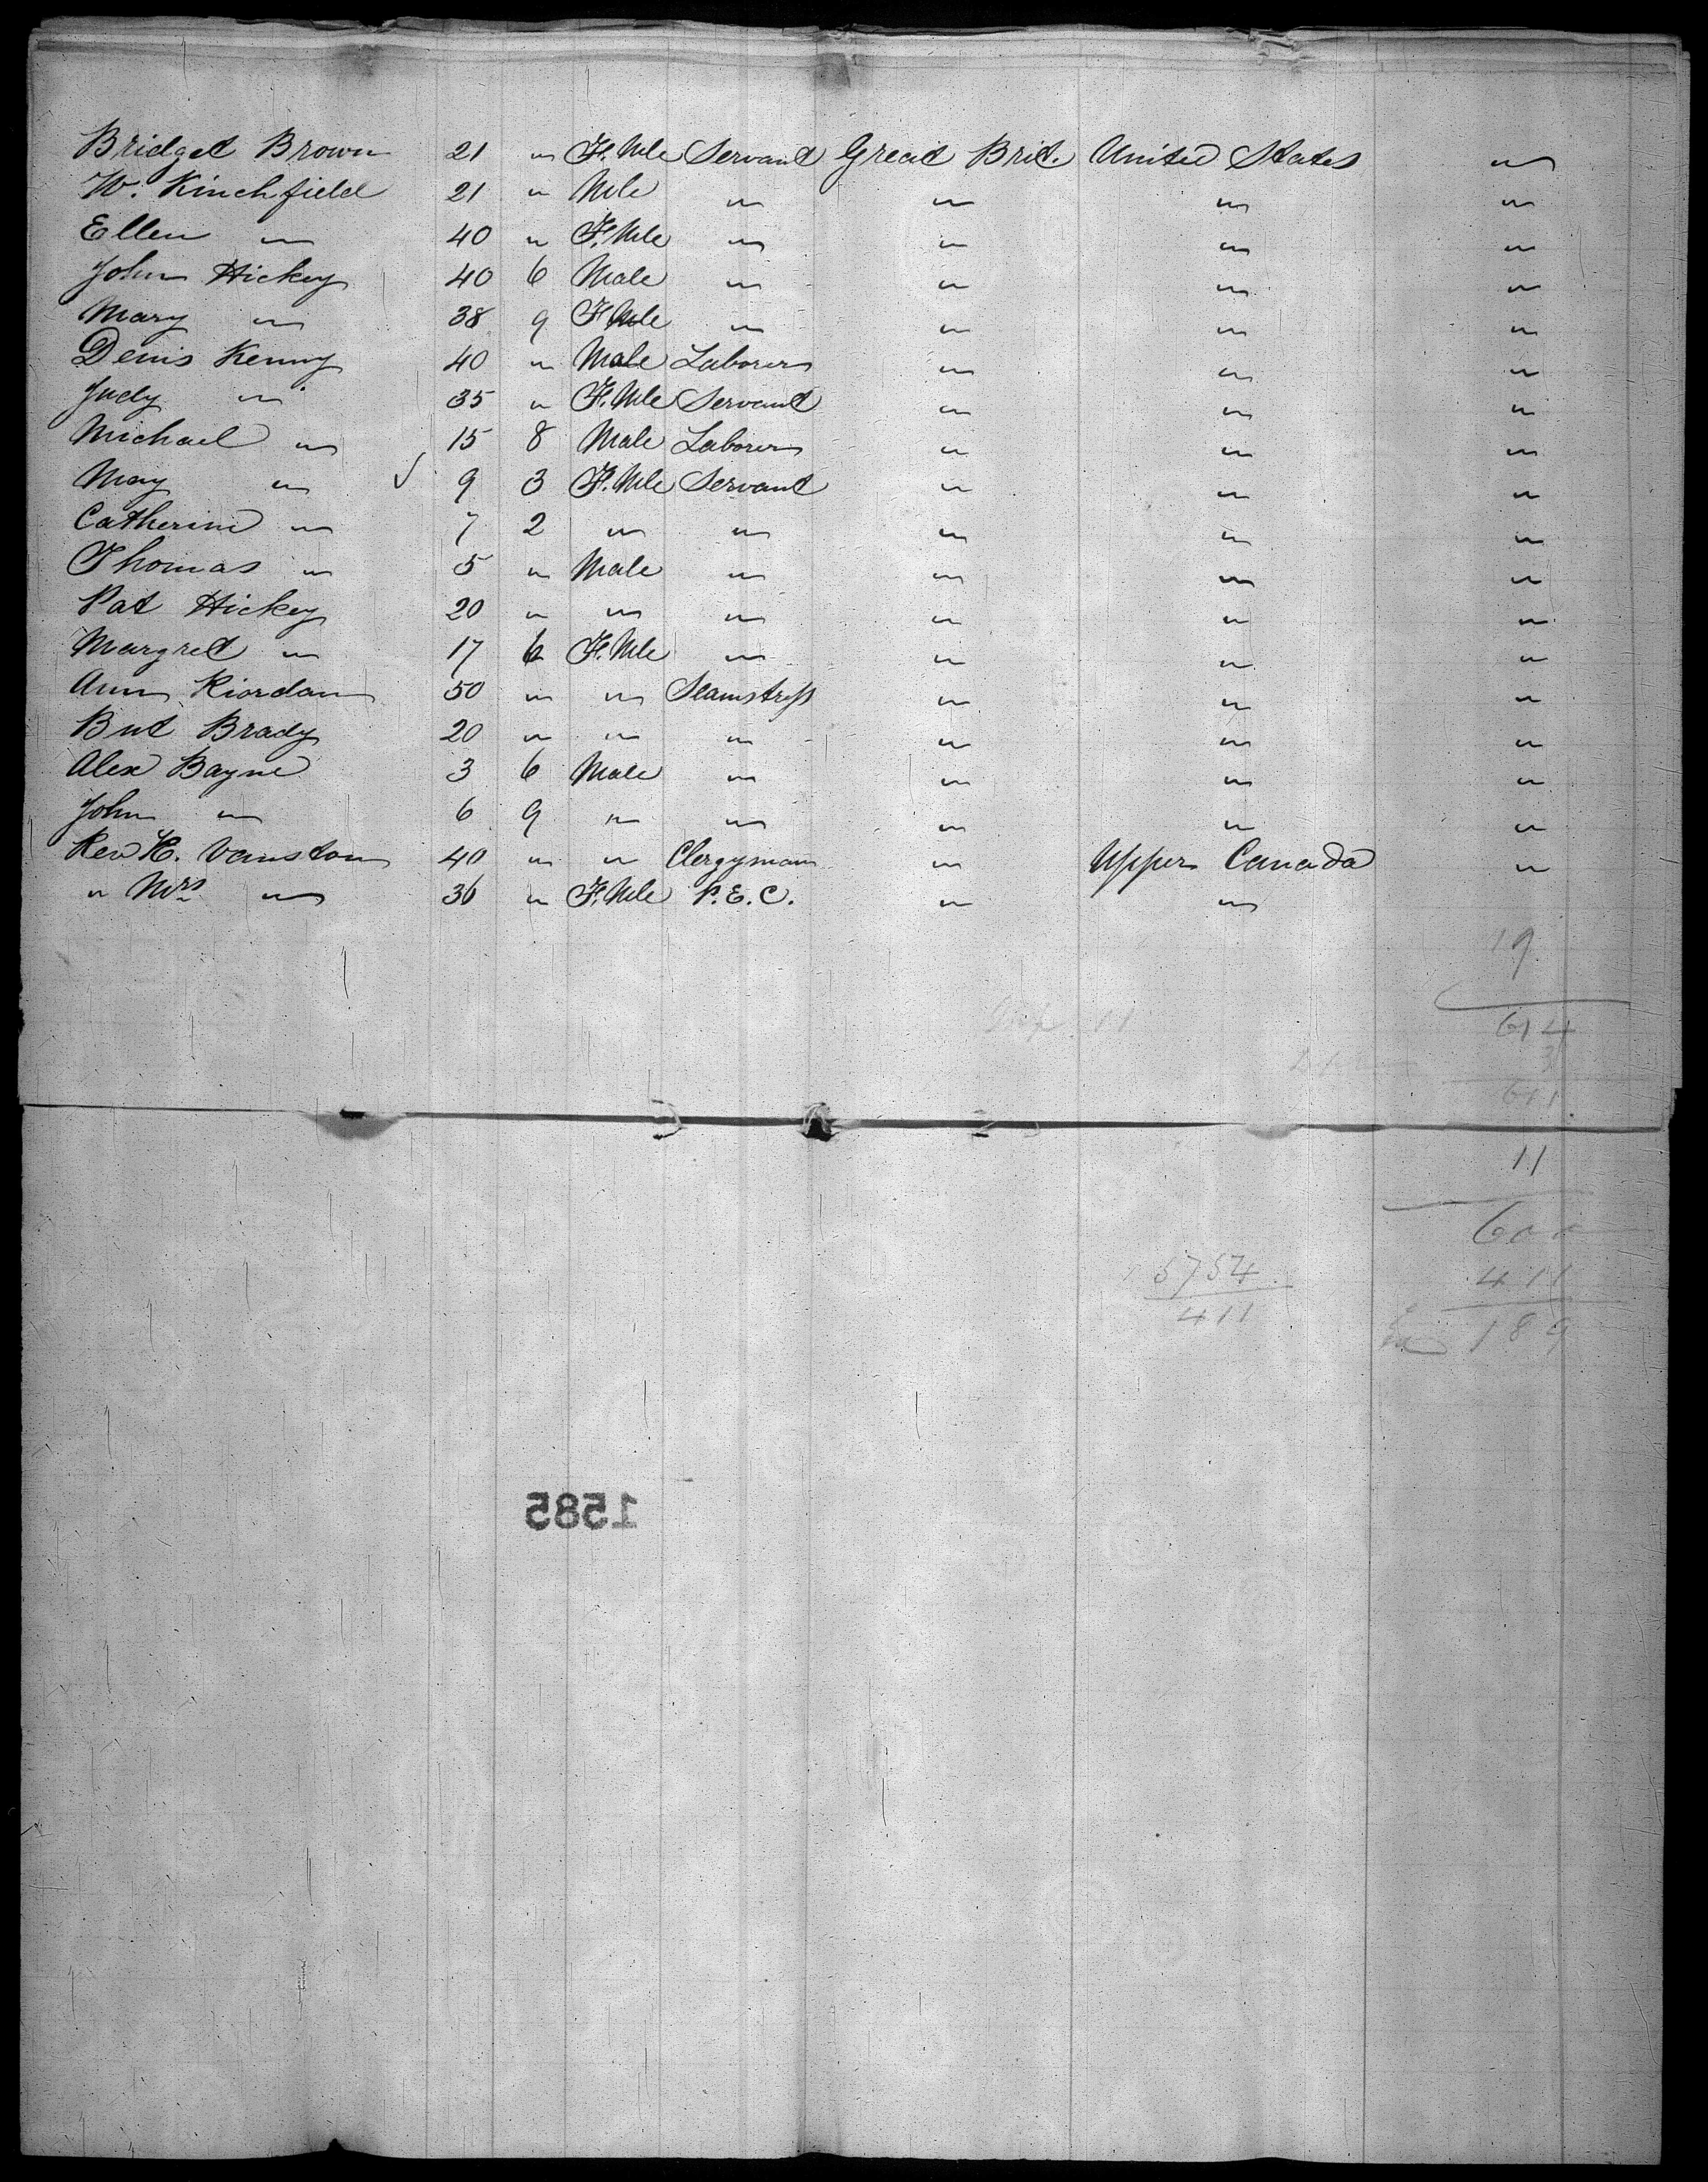 Bridget Brown 21 " F.Mle Servant Great Brit. United States "
W. Kinchfield 21 " Mle " " " "
Ellen " 40 " F.Mle " " " "
John Hickey 40 6 Male " " " "
Mary " 38 9 F Mle " " " "
Denis Kenny 40 " Male Laborer " " "
Judy " 35 " F.Mle Servant " " "
Michael " 15 8 Male Laborer " " "
May " 9 3 F.Mle Servant " " "
Catherine " 7 2 " " " " "
Thomas " 5 " Male " " " "
Pat Hickey 20 " " " " " "
Margret " 17 6 F.Mle " " " "
Ann Riordan 50 " " Seamstress " " "
But Brady 20 " " " " " "
Alex Bayne 3 6 Male " " " "
John " 6 9 " " " " "
Rev H. Vanston 40 " " Clergyman " Upper Canada "
" Mrs " 36 " F.Mle P.E.C. " "
19
614
3
611
11
600
5754 411
411 189
1585